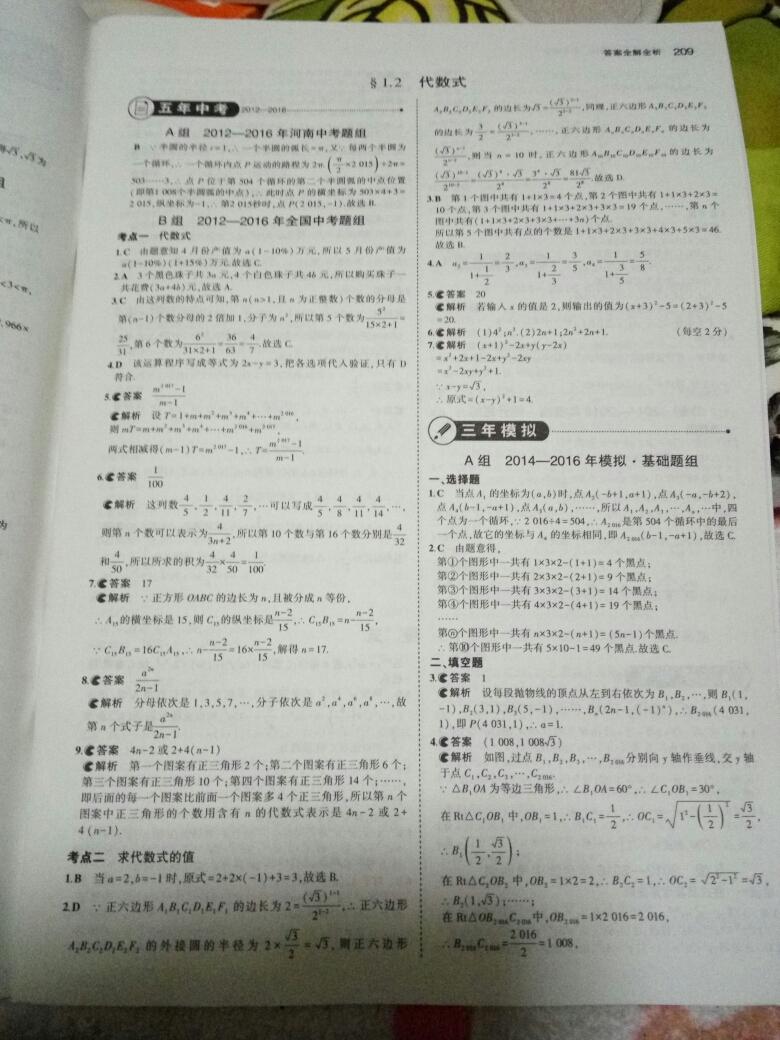 答案全解全析 209
§1.2 代数式
五年中考 2012—2016
A组 2012—2016年河南中考题组
B ∵半圆的半径r=1,∴一个半圆的弧长=π,又∵每两个半圆为
一个循环,∴一个循环内点P运动的路程为2π.(π/2×2 015)÷2π=
503……3,∴点P位于第504个循环的第二个半圆弧的中点位置
(即第1 008个半圆弧的中点),∴此时点P的横坐标为503×4+3=
2 015,纵坐标为-1,∴第2 015秒时,点P(2 015,-1).故选B.
B组 2012—2016年全国中考题组
考点一 代数式
1.C 由题意知4月份产值为a(1-10%)万元,所以5月份产值为
a(1-10%)(1+15%)万元.故选C.
2.A 3个黑色珠子共3a元,4个白色珠子共4b元,所以购买珠子一
共花费(3a+4b)元,故选A.
3.C 由这列数的特点可知,第n(n>1,且n为正整数)个数的分母是
第(n-1)个数分母的2倍加1,分子为n²,所以第5个数为5²/(15×2+1)=
25/31,第6个数为6²/(31×2+1)=36/63=4/7.故选C.
4.D 该运算程序写成等式为2x-y=3,把各选项代入验证,只有D
符合.
5.答案 (m^2 017-1)/(m-1)
解析 设T=1+m+m²+m³+m⁴+…+m^2 016,
则mT=m+m²+m³+m⁴+…+m^2 016+m^2 017,
两式相减得(m-1)T=m^2 017-1,∴T=(m^2 017-1)/(m-1).
6.答案 1/100
解析 这列数4/5,1/2,4/11,2/7,…可以写成4/5,4/8,4/11,4/14,…,
则第n个数可以表示为4/(3n+2),所以第10个数与第16个数分别是4/32
和4/50,所以所求的积为4/32×4/50=1/100.
7.答案 17
解析 ∵正方形OABC的边长为n,且被分成n等份,
∴A₁₅的横坐标是15,则C₁₅的纵坐标是(n-2)/15,∴C₁₅B₁₅=n-(n-2)/15,
∵C₁₅B₁₅=16C₁₅A₁₅,∴n-(n-2)/15=16×(n-2)/15,解得n=17.
8.答案 a^2n/(2n-1)
解析 分母依次是1,3,5,7,…,分子依次是a²,a⁴,a⁶,a⁸,…,故
第n个式子是a^2n/(2n-1).
9.答案 4n-2或2+4(n-1)
解析 第一个图案有正三角形2个;第二个图案有正三角形6个;
第三个图案有正三角形10个;第四个图案有正三角形14个;……,
即后面的每一个图案比前面一个图案多4个正三角形,所以第n个
图案中正三角形的个数用含有n的代数式表示是4n-2或2+
4(n-1).
考点二 求代数式的值
1.B 当a=2,b=-1时,原式=2+2×(-1)+3=3,故选B.
2.D ∵正六边形A₁B₁C₁D₁E₁F₁的边长为2=(√3)^(1-1)/2^(1-2),∴正六边形
A₂B₂C₂D₂E₂F₂的外接圆的半径为2×√3/2=√3,则正六边形
A₂B₂C₂D₂E₂F₂的边长为√3=(√3)^(2-1)/2^(2-2),同理,正六边形A₃B₃C₃D₃E₃F₃
的边长为3/2=(√3)^(3-1)/2^(3-2),……,正六边形AₙBₙCₙDₙEₙFₙ的边长为
(√3)^(n-1)/2^(n-2),则当n=10时,正六边形A₁₀B₁₀C₁₀D₁₀E₁₀F₁₀的边长为
(√3)^(10-1)/2^(10-2)=(√3)⁸·√3/2⁸=3⁴·√3/2⁸=81√3/2⁸.故选D.
3.B 第1个图中共有1+1×3=4个点,第2个图中共有1+1×3+2×3=
10个点,第3个图中共有1+1×3+2×3+3×3=19个点,……,第n个
图中共有(1+1×3+2×3+3×3+…+3n)个点.
所以第5个图中共有点的个数是1+1×3+2×3+3×3+4×3+5×3=46.
故选B.
4.A a₂=1/(1+1/2)=2/3,a₃=1/(1+2/3)=3/5,a₄=1/(1+3/5)=5/8.
5.答案 20
解析 若输入x的值是2,则输出的值为(x+3)²-5=(2+3)²-5
=20.
6.解析 (1)4²;n².(2)2n+1;2n²+2n+1. (每空2分)
7.解析 (x+1)²-2x+y(y-2x)
=x²+2x+1-2x+y²-2xy
=x²-2xy+y²+1.
∵x-y=√3,
∴原式=(x-y)²+1=4.
三年模拟
A组 2014—2016年模拟·基础题组
一、选择题
1.C 当点A₁的坐标为(a,b)时,点A₂(-b+1,a+1),点A₃(-a,-b+2),
点A₄(b-1,-a+1),点A₅(a,b),……,所以A₁,A₂,A₃,…,Aₙ,…中,四
个点为一个循环,∵2 016÷4=504,∴A₂₀₁₆是第504个循环中的最后
一个点,故它的坐标与A₄的坐标相同,即A₂₀₁₆(b-1,-a+1),故选C.
2.C 由题意得,
第①个图形中一共有1×3×2-(1+1)=4个黑点;
第②个图形中一共有2×3×2-(2+1)=9个黑点;
第③个图形中一共有3×3×2-(3+1)=14个黑点;
第④个图形中一共有4×3×2-(4+1)=19个黑点;
……
第ⓝ个图形中一共有n×3×2-(n+1)=(5n-1)个黑点.
∴第⑩个图形中一共有5×10-1=49个黑点.故选C.
二、填空题
3.答案 1
解析 设每段抛物线的顶点从左到右依次为B₁,B₂,…,则B₁(1,
-1),B₂(3,1),B₃(5,-1),……,Bₙ(2n-1,(-1)ⁿ),∴B₂₀₁₆(4 031,
1),即P(4 031,1),∴a=1.
4.答案 (1 008,1 008√3)
解析 如图,过点B₁,B₂,B₃,…,B₂₀₁₆分别向y轴作垂线,交y轴
于点C₁,C₂,C₃,…,C₂₀₁₆.
∵△B₁OA为等边三角形,∴∠B₁OA=60°,∴∠C₁OB₁=30°,
在Rt△C₁OB₁中,OB₁=1,∴B₁C₁=1/2,∴OC₁=√(1²-(1/2)²)=√3/2,
∴B₁(1/2,√3/2);
在Rt△C₂OB₂中,OB₂=1×2=2,∴B₂C₂=1,∴OC₂=√(2²-1²)=√3,
∴B₂(1,√3);……;
在Rt△OB₂₀₁₆C₂₀₁₆中,OB₂₀₁₆=1×2 016=2 016,
∴B₂₀₁₆C₂₀₁₆=2 016/2=1 008,